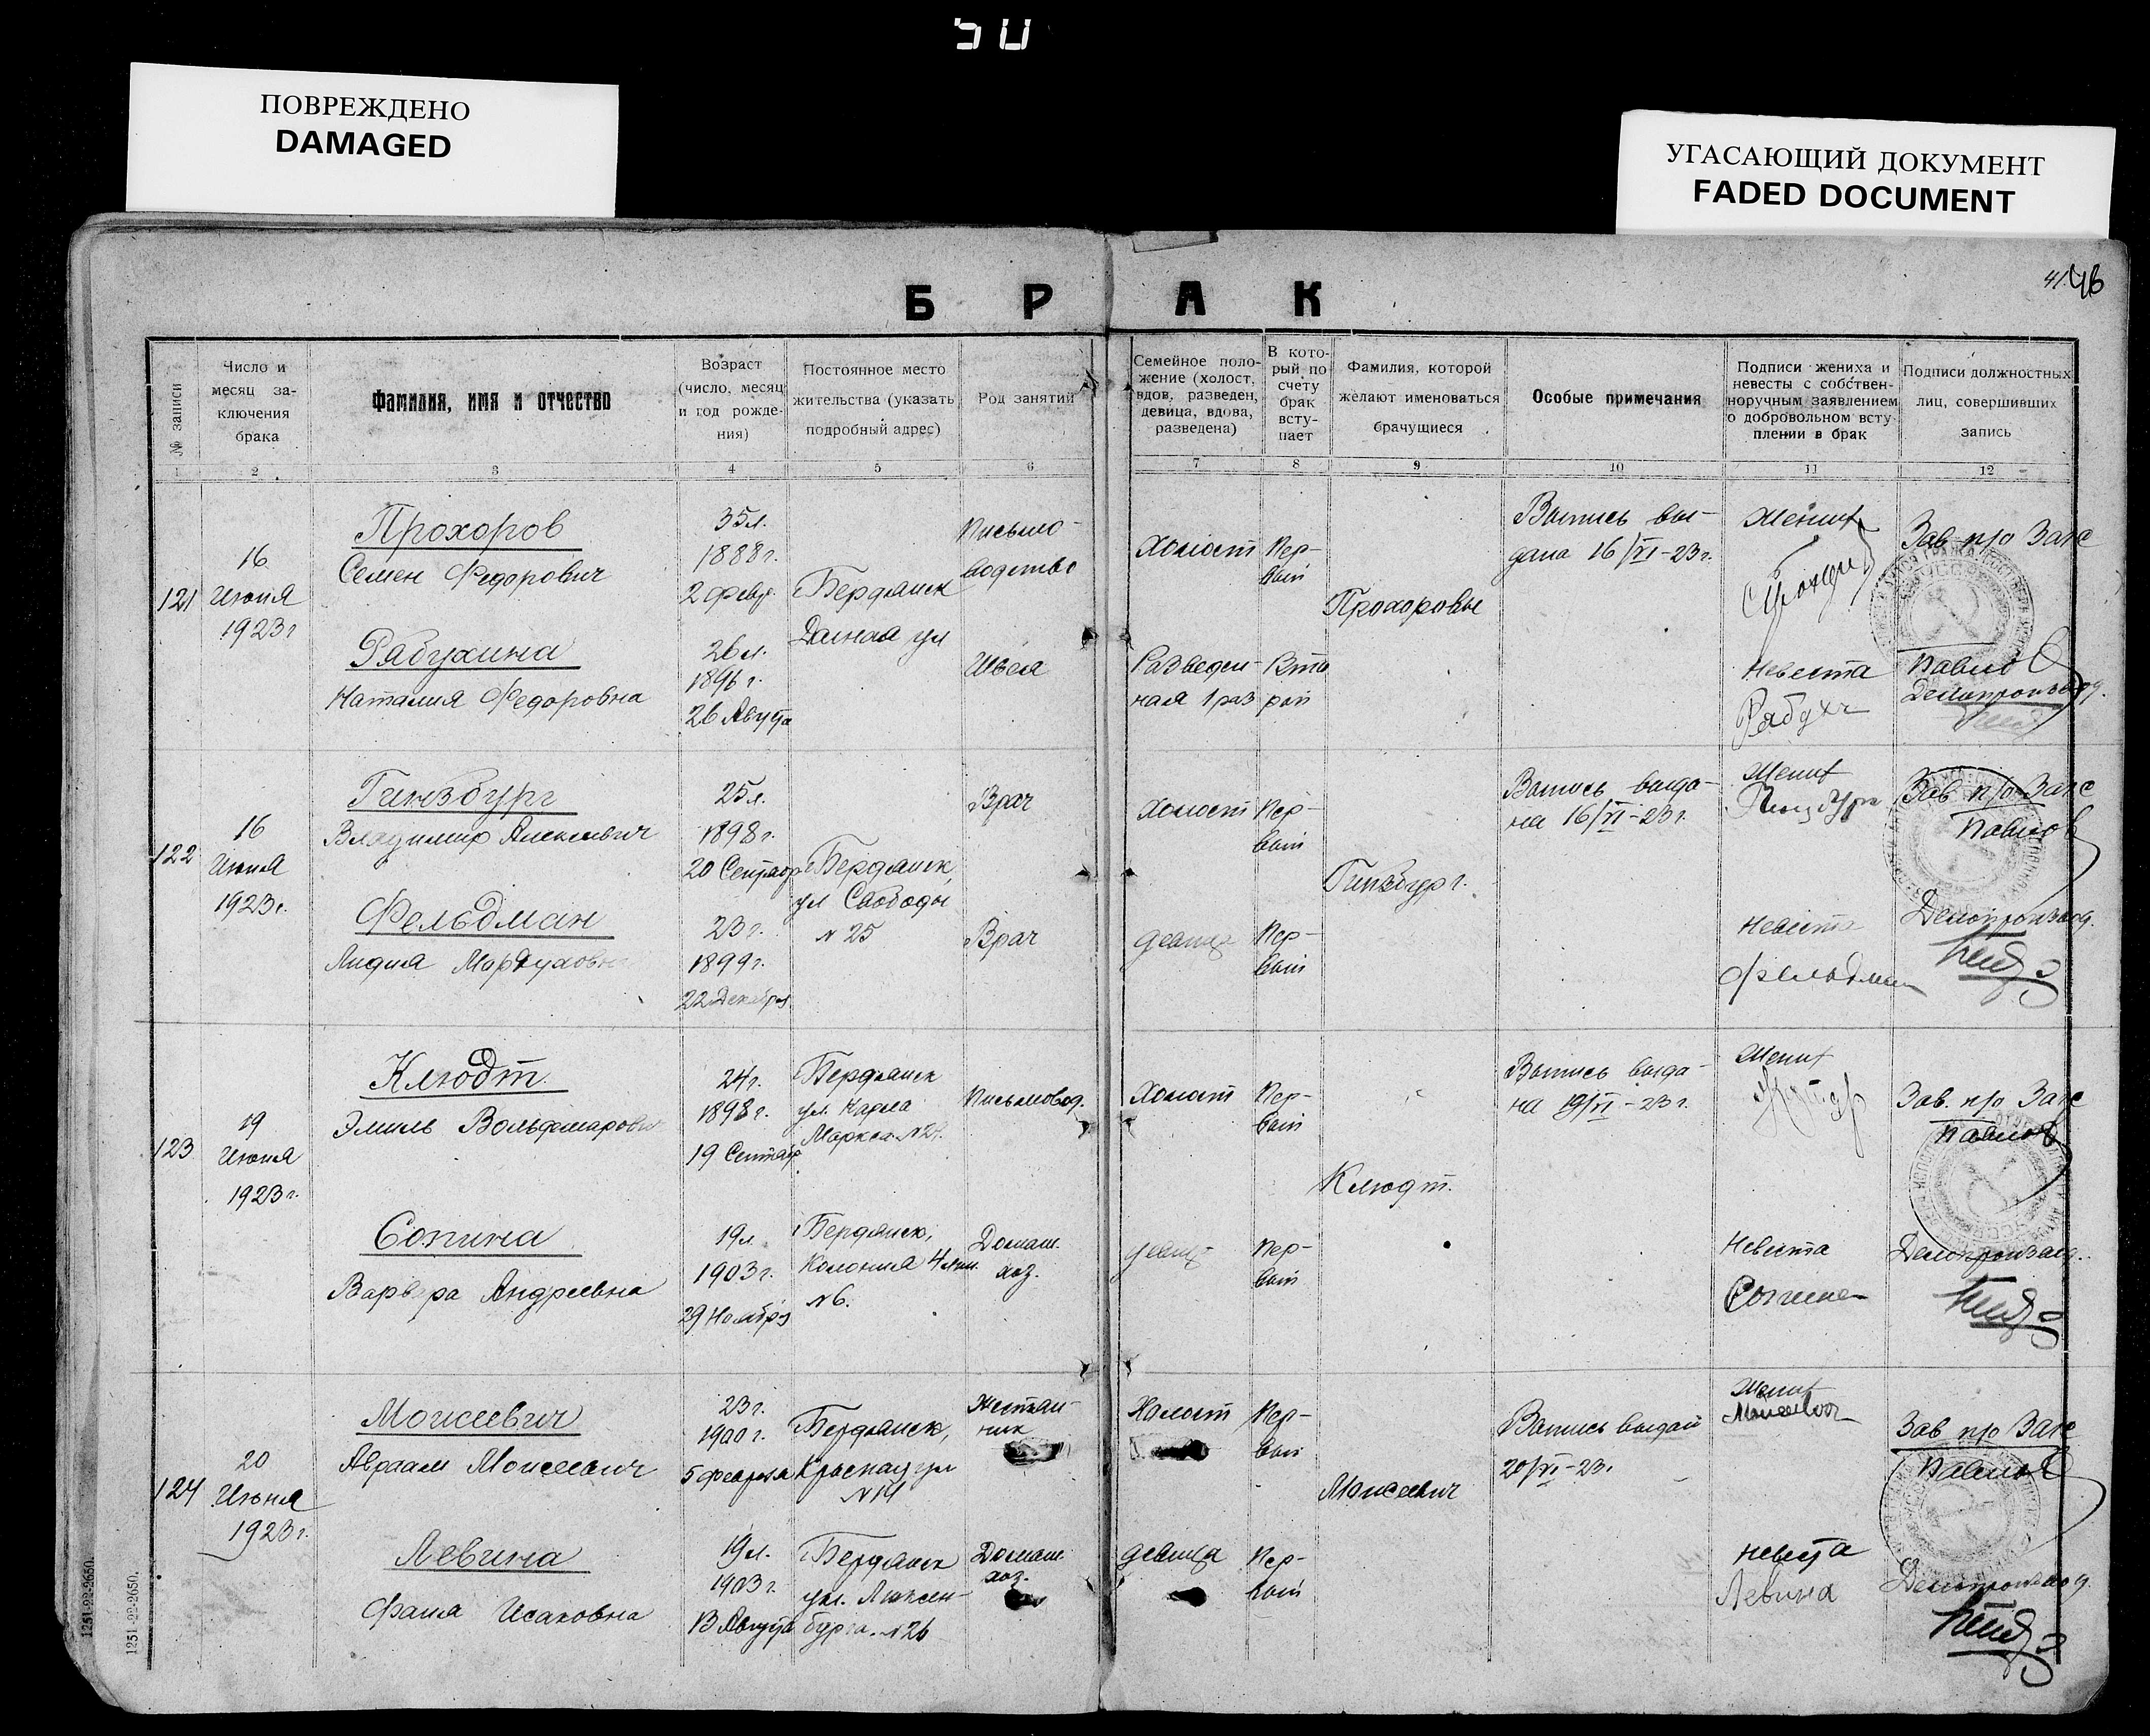 50
ПОВРЕЖДЕНО
DAMAGED
УГАСАЮЩИЙ ДОКУМЕНТ
FADED DOCUMENT
41. 46
БРАК
№ записи
Число и месяц за-
ключения
брака
Фамилия, имя и отчество
Возраст
(число, месяц
и год рожде-
ния)
Постоянное место
жительства (указать
подробный адрес)
Род занятий
Семейное поло-
жение (холост,
вдов, разведен,
девица, вдова,
разведена)
В кото-
рый по
счету
брак
всту-
пает
Фамилия, которой
желают именоваться
брачущиеся
Особые примечания
Подписи жениха и
невесты с собствен-
норучным заявлением
о добровольном всту-
плении в брак
Подписи должностных
лиц, совершивших
запись
1 2 3 4 5 6 7 8 9 10 11 12
121
16
Июня
1923г
Прохоров
Семен Федорович
35л.
1888г.
2 февр.
Бердянск
Дачная ул
Письмо-
водство
Холост
Пер-
вый
Прохоровы
Выпись вы-
дана 16/VI-23г.
Жених
Зав п/о Загс
Рябухина
Наталия Федоровна
26л.
1896г.
26 Августа
Швея
Разведен-
ная 1 раз
Вто
рой
Невеста
Рябухи
Павлов
Делопроизвод.
122
16
Июня
1923г.
Гинзбург
Владимир Алексеевич
25л.
1898г.
20 Сентябр
Бердянск,
ул Свободы
N 25
Врач
Холост
Пер-
вый
Гинзбург.
Выпись выда-
на 16/VI-23г.
Жених
Гинзбург
Зав п/о Загс
Павлов
Фельдман
Лидия Мордуховна
23г.
1899г.
22 Декабря
Врач
девица
Пер-
вый
Невеста
Фельдман
Делопроизвод.
123
19
Июня
1923г.
Клюдт.
Эмиль Вольдемарович
24г.
1898г.
19 Сентябр
Бердянск
ул. Карла
Маркса N27.
Письмовод.
Холост
Пер-
вый
Клюдт.
Выпись выда-
на 19/VI-23г.
Жених
Зав. п/о Загс
Павлов
Сопина
Варвара Андреевна
19л.
1903г.
29 Ноября
Бердянск,
Колония 4 лин.
N6.
Домаш.
хоз.
девица
Пер-
вый
Невеста
Сопина
Делопроизвод.
124
20
Июня
1923г.
Моисеевич
Авраам Моисеевич
23г.
1900г.
5 февраля
Бердянск,
Красная ул
N14
Жестян-
ник
Холост
Пер-
вый
Моисеевич
Выпись выдан
20/VI-23г.
Жених
Зав п/о Загс
Павлов
Левина
Фаня Исаковна
19л.
1903г.
13 Августа
Бердянск
ул. Люксем-
бурга. N26
Домаш.
хоз.
девица
Пер-
вый
Невеста
Левина
Делопроизвод.
1251-22-2650.
1251-22-2650.